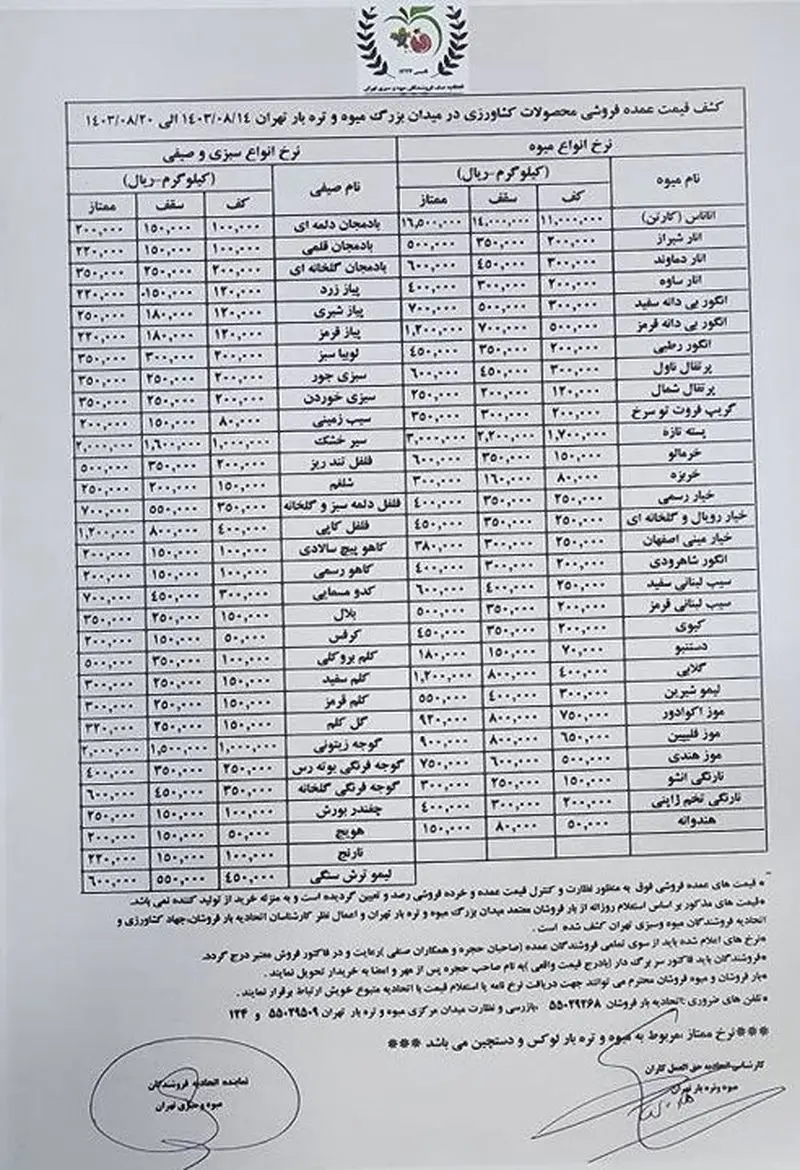 تاسیس ۱۳۲۴
اتحادیه صنف فروشندگان میوه و سبزی تهران
کشف قیمت عمده فروشی محصولات کشاورزی در میدان بزرگ میوه و تره بار تهران ۱۴۰۳/۰۸/۱۴ الی ۱۴۰۳/۰۸/۲۰
نرخ انواع میوه نرخ انواع سبزی و صیفی
نام میوه (کیلوگرم-ریال) نام صیفی (کیلوگرم-ریال)
کف سقف ممتاز کف سقف ممتاز
اناناس (کارتن) ۱۱,۰۰۰,۰۰۰ ۱۴,۰۰۰,۰۰۰ ۱۶,۵۰۰,۰۰۰ بادمجان دلمه ای ۱۰۰,۰۰۰ ۱۵۰,۰۰۰ ۲۰۰,۰۰۰
انار شیراز ۲۰۰,۰۰۰ ۳۵۰,۰۰۰ ۵۰۰,۰۰۰ بادمجان قلمی ۱۰۰,۰۰۰ ۱۵۰,۰۰۰ ۲۲۰,۰۰۰
انار دماوند ۳۰۰,۰۰۰ ۴۵۰,۰۰۰ ۶۰۰,۰۰۰ بادمجان گلخانه ای ۲۰۰,۰۰۰ ۲۵۰,۰۰۰ ۳۵۰,۰۰۰
انار ساوه ۲۰۰,۰۰۰ ۳۰۰,۰۰۰ ۴۰۰,۰۰۰ پیاز زرد ۱۲۰,۰۰۰ ۱۵۰,۰۰۰ ۲۲۰,۰۰۰
انگور بی دانه سفید ۳۰۰,۰۰۰ ۵۰۰,۰۰۰ ۷۰۰,۰۰۰ پیاز شیری ۱۲۰,۰۰۰ ۱۸۰,۰۰۰ ۲۵۰,۰۰۰
انگور بی دانه قرمز ۵۰۰,۰۰۰ ۷۰۰,۰۰۰ ۱,۲۰۰,۰۰۰ پیاز قرمز ۱۲۰,۰۰۰ ۱۸۰,۰۰۰ ۲۲۰,۰۰۰
انگور رطبی ۲۰۰,۰۰۰ ۳۵۰,۰۰۰ ۴۵۰,۰۰۰ لوبیا سبز ۲۰۰,۰۰۰ ۳۰۰,۰۰۰ ۳۵۰,۰۰۰
پرتقال ناول ۳۰۰,۰۰۰ ۴۵۰,۰۰۰ ۶۰۰,۰۰۰ سبزی جور ۲۰۰,۰۰۰ ۲۵۰,۰۰۰ ۳۵۰,۰۰۰
پرتقال شمال ۱۲۰,۰۰۰ ۲۰۰,۰۰۰ ۲۵۰,۰۰۰ سبزی خوردن ۲۰۰,۰۰۰ ۲۵۰,۰۰۰ ۳۵۰,۰۰۰
گریپ فروت تو سرخ ۲۰۰,۰۰۰ ۳۰۰,۰۰۰ ۳۵۰,۰۰۰ سیب زمینی ۸۰,۰۰۰ ۱۵۰,۰۰۰ ۲۰۰,۰۰۰
پسته تازه ۱,۷۰۰,۰۰۰ ۲,۲۰۰,۰۰۰ ۳,۰۰۰,۰۰۰ سیر خشک ۱,۰۰۰,۰۰۰ ۱,۶۰۰,۰۰۰ ۲,۰۰۰,۰۰۰
خرمالو ۱۵۰,۰۰۰ ۳۵۰,۰۰۰ ۶۰۰,۰۰۰ فلفل تند ریز ۲۰۰,۰۰۰ ۳۵۰,۰۰۰ ۵۰۰,۰۰۰
خربزه ۸۰,۰۰۰ ۱۶۰,۰۰۰ ۳۰۰,۰۰۰ شلغم ۱۵۰,۰۰۰ ۲۰۰,۰۰۰ ۲۵۰,۰۰۰
خیار رسمی ۲۵۰,۰۰۰ ۳۵۰,۰۰۰ ۴۰۰,۰۰۰ فلفل دلمه سبز و گلخانه ۳۵۰,۰۰۰ ۵۵۰,۰۰۰ ۷۰۰,۰۰۰
خیار رویال و گلخانه ای ۲۵۰,۰۰۰ ۳۵۰,۰۰۰ ۴۵۰,۰۰۰ فلفل کاپی ۴۰۰,۰۰۰ ۸۰۰,۰۰۰ ۱,۲۰۰,۰۰۰
خیار مینی اصفهان ۲۵۰,۰۰۰ ۳۰۰,۰۰۰ ۳۸۰,۰۰۰ کاهو پیچ سالادی ۱۰۰,۰۰۰ ۱۵۰,۰۰۰ ۲۰۰,۰۰۰
انگور شاهرودی ۲۰۰,۰۰۰ ۳۰۰,۰۰۰ ۴۰۰,۰۰۰ کاهو رسمی ۱۰۰,۰۰۰ ۱۵۰,۰۰۰ ۲۰۰,۰۰۰
سیب لبنانی سفید ۲۵۰,۰۰۰ ۴۰۰,۰۰۰ ۶۰۰,۰۰۰ کدو مسمایی ۳۰۰,۰۰۰ ۴۵۰,۰۰۰ ۷۰۰,۰۰۰
سیب لبنانی قرمز ۲۰۰,۰۰۰ ۳۵۰,۰۰۰ ۵۰۰,۰۰۰ بلال ۱۵۰,۰۰۰ ۲۵۰,۰۰۰ ۳۵۰,۰۰۰
کیوی ۲۰۰,۰۰۰ ۳۵۰,۰۰۰ ۴۵۰,۰۰۰ کرفس ۵۰,۰۰۰ ۱۵۰,۰۰۰ ۲۰۰,۰۰۰
دستنبو ۷۰,۰۰۰ ۱۵۰,۰۰۰ ۱۸۰,۰۰۰ کلم بروکلی ۱۰۰,۰۰۰ ۳۵۰,۰۰۰ ۵۰۰,۰۰۰
گلابی ۴۰۰,۰۰۰ ۸۰۰,۰۰۰ ۱,۲۰۰,۰۰۰ کلم سفید ۱۵۰,۰۰۰ ۲۵۰,۰۰۰ ۳۰۰,۰۰۰
لیمو شیرین ۳۰۰,۰۰۰ ۴۰۰,۰۰۰ ۵۵۰,۰۰۰ کلم قرمز ۱۵۰,۰۰۰ ۲۵۰,۰۰۰ ۳۰۰,۰۰۰
موز اکوادور ۷۵۰,۰۰۰ ۸۰۰,۰۰۰ ۹۲۰,۰۰۰ گل کلم ۱۵۰,۰۰۰ ۲۵۰,۰۰۰ ۳۲۰,۰۰۰
موز فلیپین ۶۵۰,۰۰۰ ۸۰۰,۰۰۰ ۹۰۰,۰۰۰ گوجه زیتونی ۱,۰۰۰,۰۰۰ ۱,۵۰۰,۰۰۰ ۲,۰۰۰,۰۰۰
موز هندی ۵۰۰,۰۰۰ ۶۰۰,۰۰۰ ۷۵۰,۰۰۰ گوجه فرنگی بوته رس ۲۵۰,۰۰۰ ۳۵۰,۰۰۰ ۴۰۰,۰۰۰
نارنگی انشو ۱۵۰,۰۰۰ ۲۵۰,۰۰۰ ۳۰۰,۰۰۰ گوجه فرنگی گلخانه ۳۵۰,۰۰۰ ۴۵۰,۰۰۰ ۶۰۰,۰۰۰
نارنگی تخم ژاپنی ۲۰۰,۰۰۰ ۳۰۰,۰۰۰ ۴۰۰,۰۰۰ چغندر بورش ۱۰۰,۰۰۰ ۱۵۰,۰۰۰ ۲۵۰,۰۰۰
هندوانه ۵۰,۰۰۰ ۸۰,۰۰۰ ۱۵۰,۰۰۰ هویج ۵۰,۰۰۰ ۱۵۰,۰۰۰ ۲۰۰,۰۰۰
نارنج ۱۰۰,۰۰۰ ۱۵۰,۰۰۰ ۲۲۰,۰۰۰
لیمو ترش سنگی ۴۵۰,۰۰۰ ۵۵۰,۰۰۰ ۶۰۰,۰۰۰
* قیمت های عمده فروشی فوق به منظور نظارت و کنترل قیمت عمده و خرده فروشی رصد و تعیین گردیده است و به منزله خرید از تولید کننده نمی باشد.
*قیمت های مذکور بر اساس استعلام روزانه از بار فروشان معتمد میدان بزرگ میوه و تره بار تهران و اعمال نظر کارشناسان اتحادیه بار فروشان،جهاد کشاورزی و
اتحادیه فروشندگان میوه وسبزی تهران کشف شده است .
*نرخ های اعلام شده باید از سوی تمامی فروشندگان عمده (صاحبان حجره و همکاران صنفی )رعایت و در فاکتور فروش معتبر درج گردد.
*فروشندگان باید فاکتور سر برگ دار (بادرج قیمت واقعی )به نام صاحب حجره پس از مهر و امضا به خریدار تحویل نمایند .
*بار فروشان و میوه فروشان محترم می توانند جهت دریافت نرخ نامه یا استعلام قیمت با اتحادیه متبوع خویش ارتباط برقرار نمایند .
* تلفن های ضروری :اتحادیه بار فروشان ۵۵۰۲۹۲۶۸ ،بازرسی و نظارت میدان مرکزی میوه و تره بار تهران ۵۵۰۲۹۵۰۹ و ۱۲۴
***نرخ ممتاز ،مربوط به میوه و تره بار لوکس و دستچین می باشد ***
کارشناس،اتحادیه حق العمل کاران
میوه وتره بار تهران
نماینده اتحادیه فروشندگان
میوه و سبزی تهران